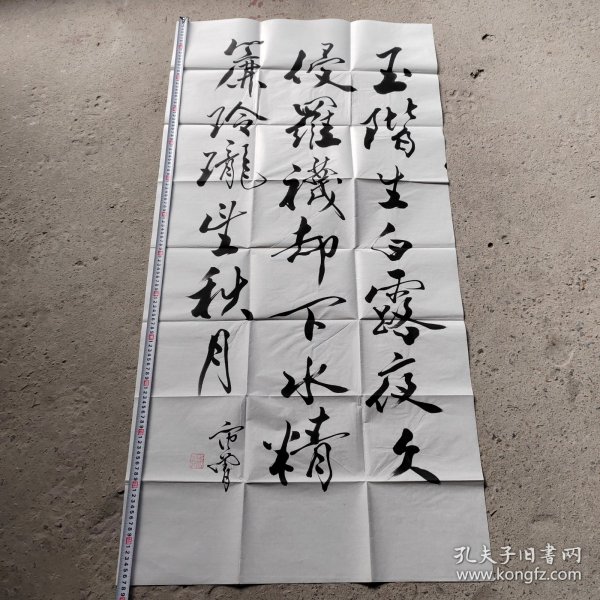 玉階生白露夜久
侵羅襪却下水精
簾玲瓏望秋月
孔夫子旧書网
www.kongfz.com